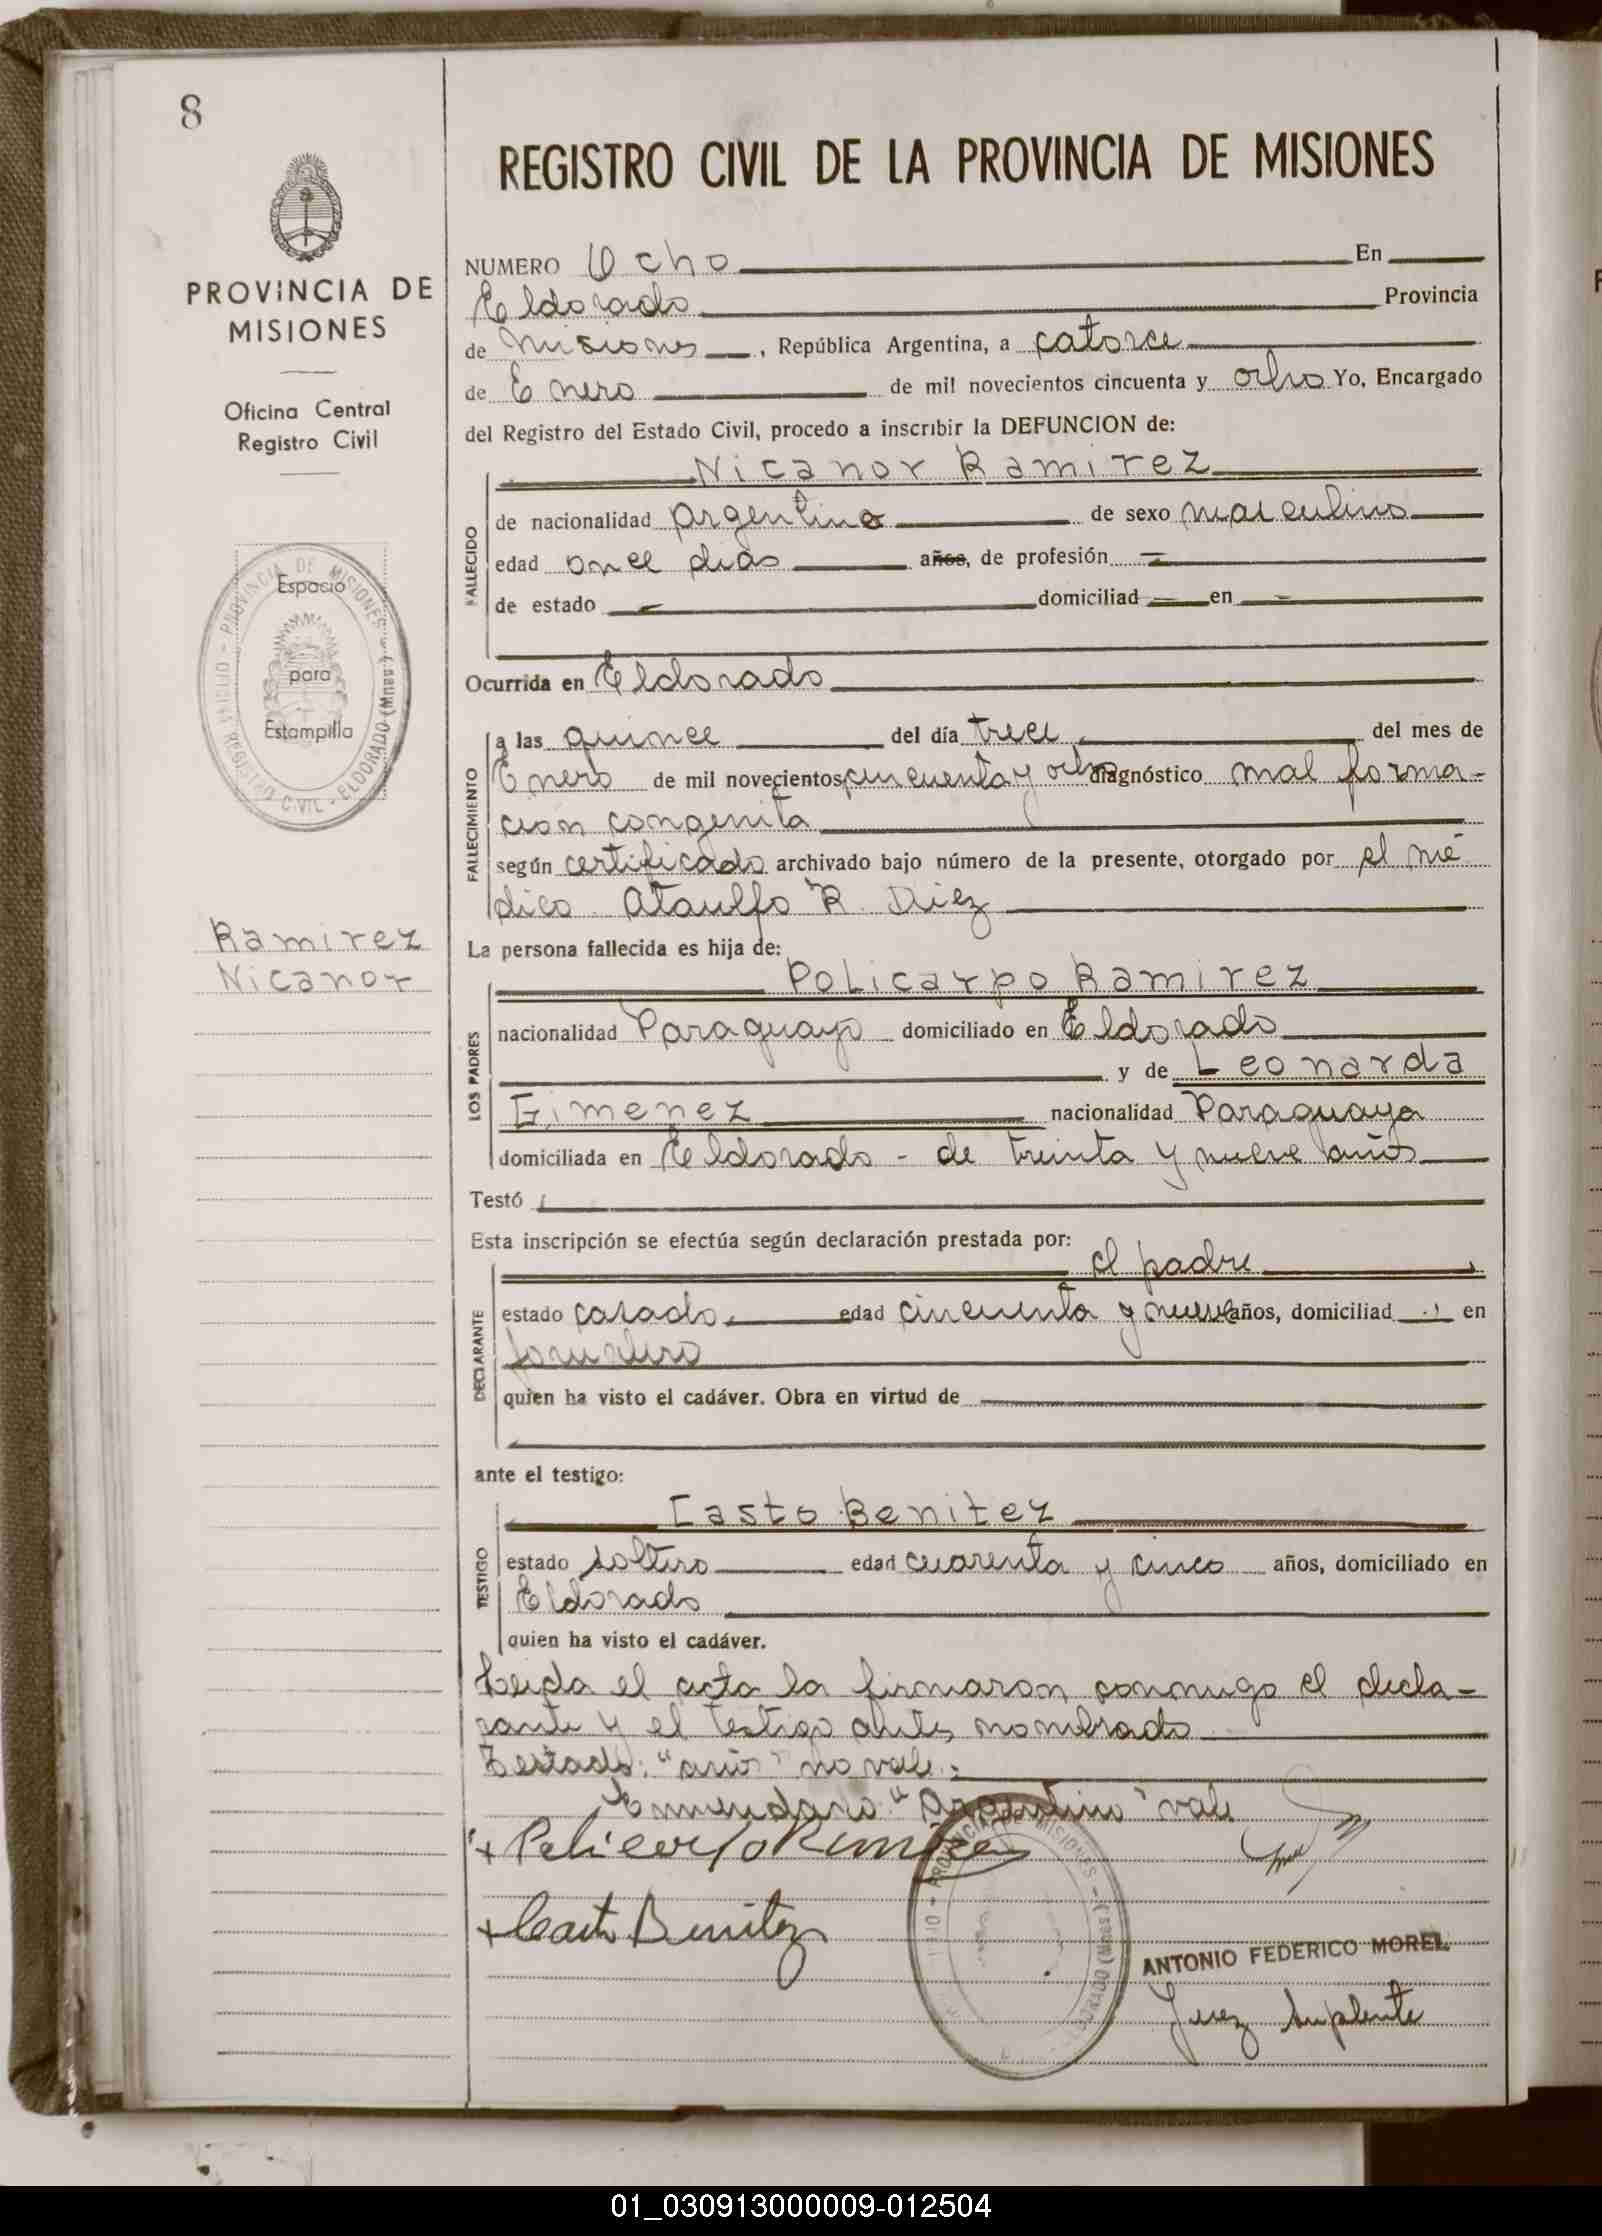 8
PROVINCIA DE
MISIONES
Oficina Central
Registro Civil
PROVINCIA DE MISIONES - ELDORADO (Mnes.) - REGISTRO CIVIL
Espacio
para
Estampilla
Ramirez
Nicanor
REGISTRO CIVIL DE LA PROVINCIA DE MISIONES
NUMERO Ocho En
Eldorado Provincia
de Misiones, República Argentina, a catorce
de Enero de mil novecientos cincuenta y ocho Yo, Encargado
del Registro del Estado Civil, procedo a inscribir la DEFUNCION de:
Nicanor Ramirez
FALLECIDO
de nacionalidad argentino de sexo masculino
edad once dias años, de profesión —
de estado — domiciliad — en —
Ocurrida en Eldorado
FALLECIMIENTO
a las quince del día trece del mes de
Enero de mil novecientos cincuenta y ocho diagnóstico mal forma-
cion congenita
según certificado archivado bajo número de la presente, otorgado por el mé
dico Ataulfo R. Diez
La persona fallecida es hija de:
LOS PADRES
Policarpo Ramirez
nacionalidad Paraguayo domiciliado en Eldorado
y de Leonarda
Gimenez nacionalidad Paraguaya
domiciliada en Eldorado - de treinta y nueve años
Testó
Esta inscripción se efectúa según declaración prestada por:
DECLARANTE
el padre
estado casado edad cincuenta y nueve años, domiciliad en
quien ha visto el cadáver. Obra en virtud de
ante el testigo:
TESTIGO
Casto Benitez
estado soltero edad cuarenta y cinco años, domiciliado en
Eldorado
quien ha visto el cadáver.
Leida el acta la firmaron conmigo el decla-
rante y el testigo antes nombrado
Testado: "años" no vale:
Enmendado: "Argentino" vale
+ Policarpo Ramirez
+ Casto Benitez
PROVINCIA DE MISIONES - ELDORADO (Mnes.)
ANTONIO FEDERICO MOREL
Juez Suplente
01_030913000009-012504